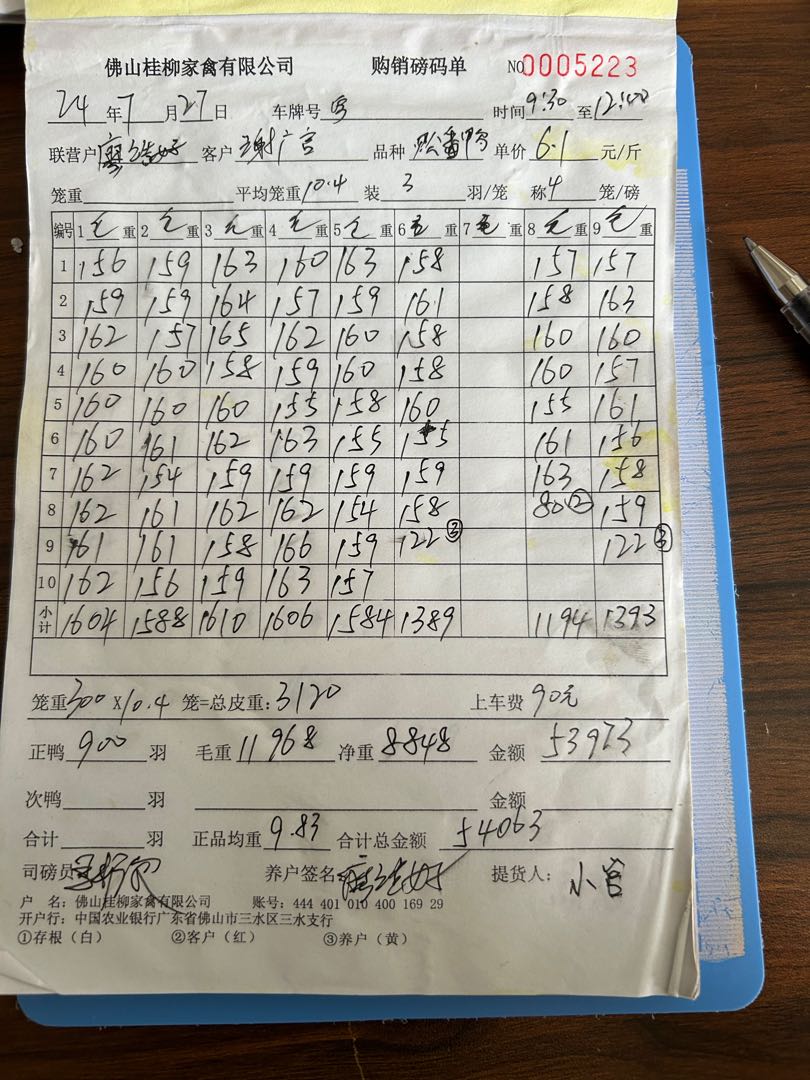 佛山桂柳家禽有限公司 购销磅码单 NO 0005223
24年7月27日 车牌号 时间9:30至12:00
联营户 客户 谢广宫 品种 单价6.1元/斤
笼重 平均笼重10.4 装3羽/笼 称4笼/磅
编号 1毛重 2毛重 3毛重 4毛重 5毛重 6毛重 7毛重 8毛重 9毛重
1 156 159 163 160 163 158 157 157
2 159 159 164 157 159 161 158 163
3 162 157 165 162 160 158 160 160
4 160 160 158 159 160 158 160 157
5 160 160 160 155 158 160 155 161
6 160 161 162 163 155 155 161 156
7 162 154 159 159 159 159 163 158
8 162 161 162 162 154 158 80② 159
9 161 161 158 166 159 122③ 122③
10 162 156 159 163 157
小计 1604 1588 1610 1606 1584 1389 1194 1393
笼重300×10.4 笼=总皮重:3120 上车费90元
正鸭900羽 毛重11968 净重8848 金额53973
次鸭 羽 金额
合计 羽 正品均重9.83 合计总金额54063
司磅员 养户签名 提货人: 小宫
户 名: 佛山桂柳家禽有限公司 账号: 444 401 010 400 169 29
开户行: 中国农业银行广东省佛山市三水区三水支行
①存根（白） ②客户（红） ③养户（黄）